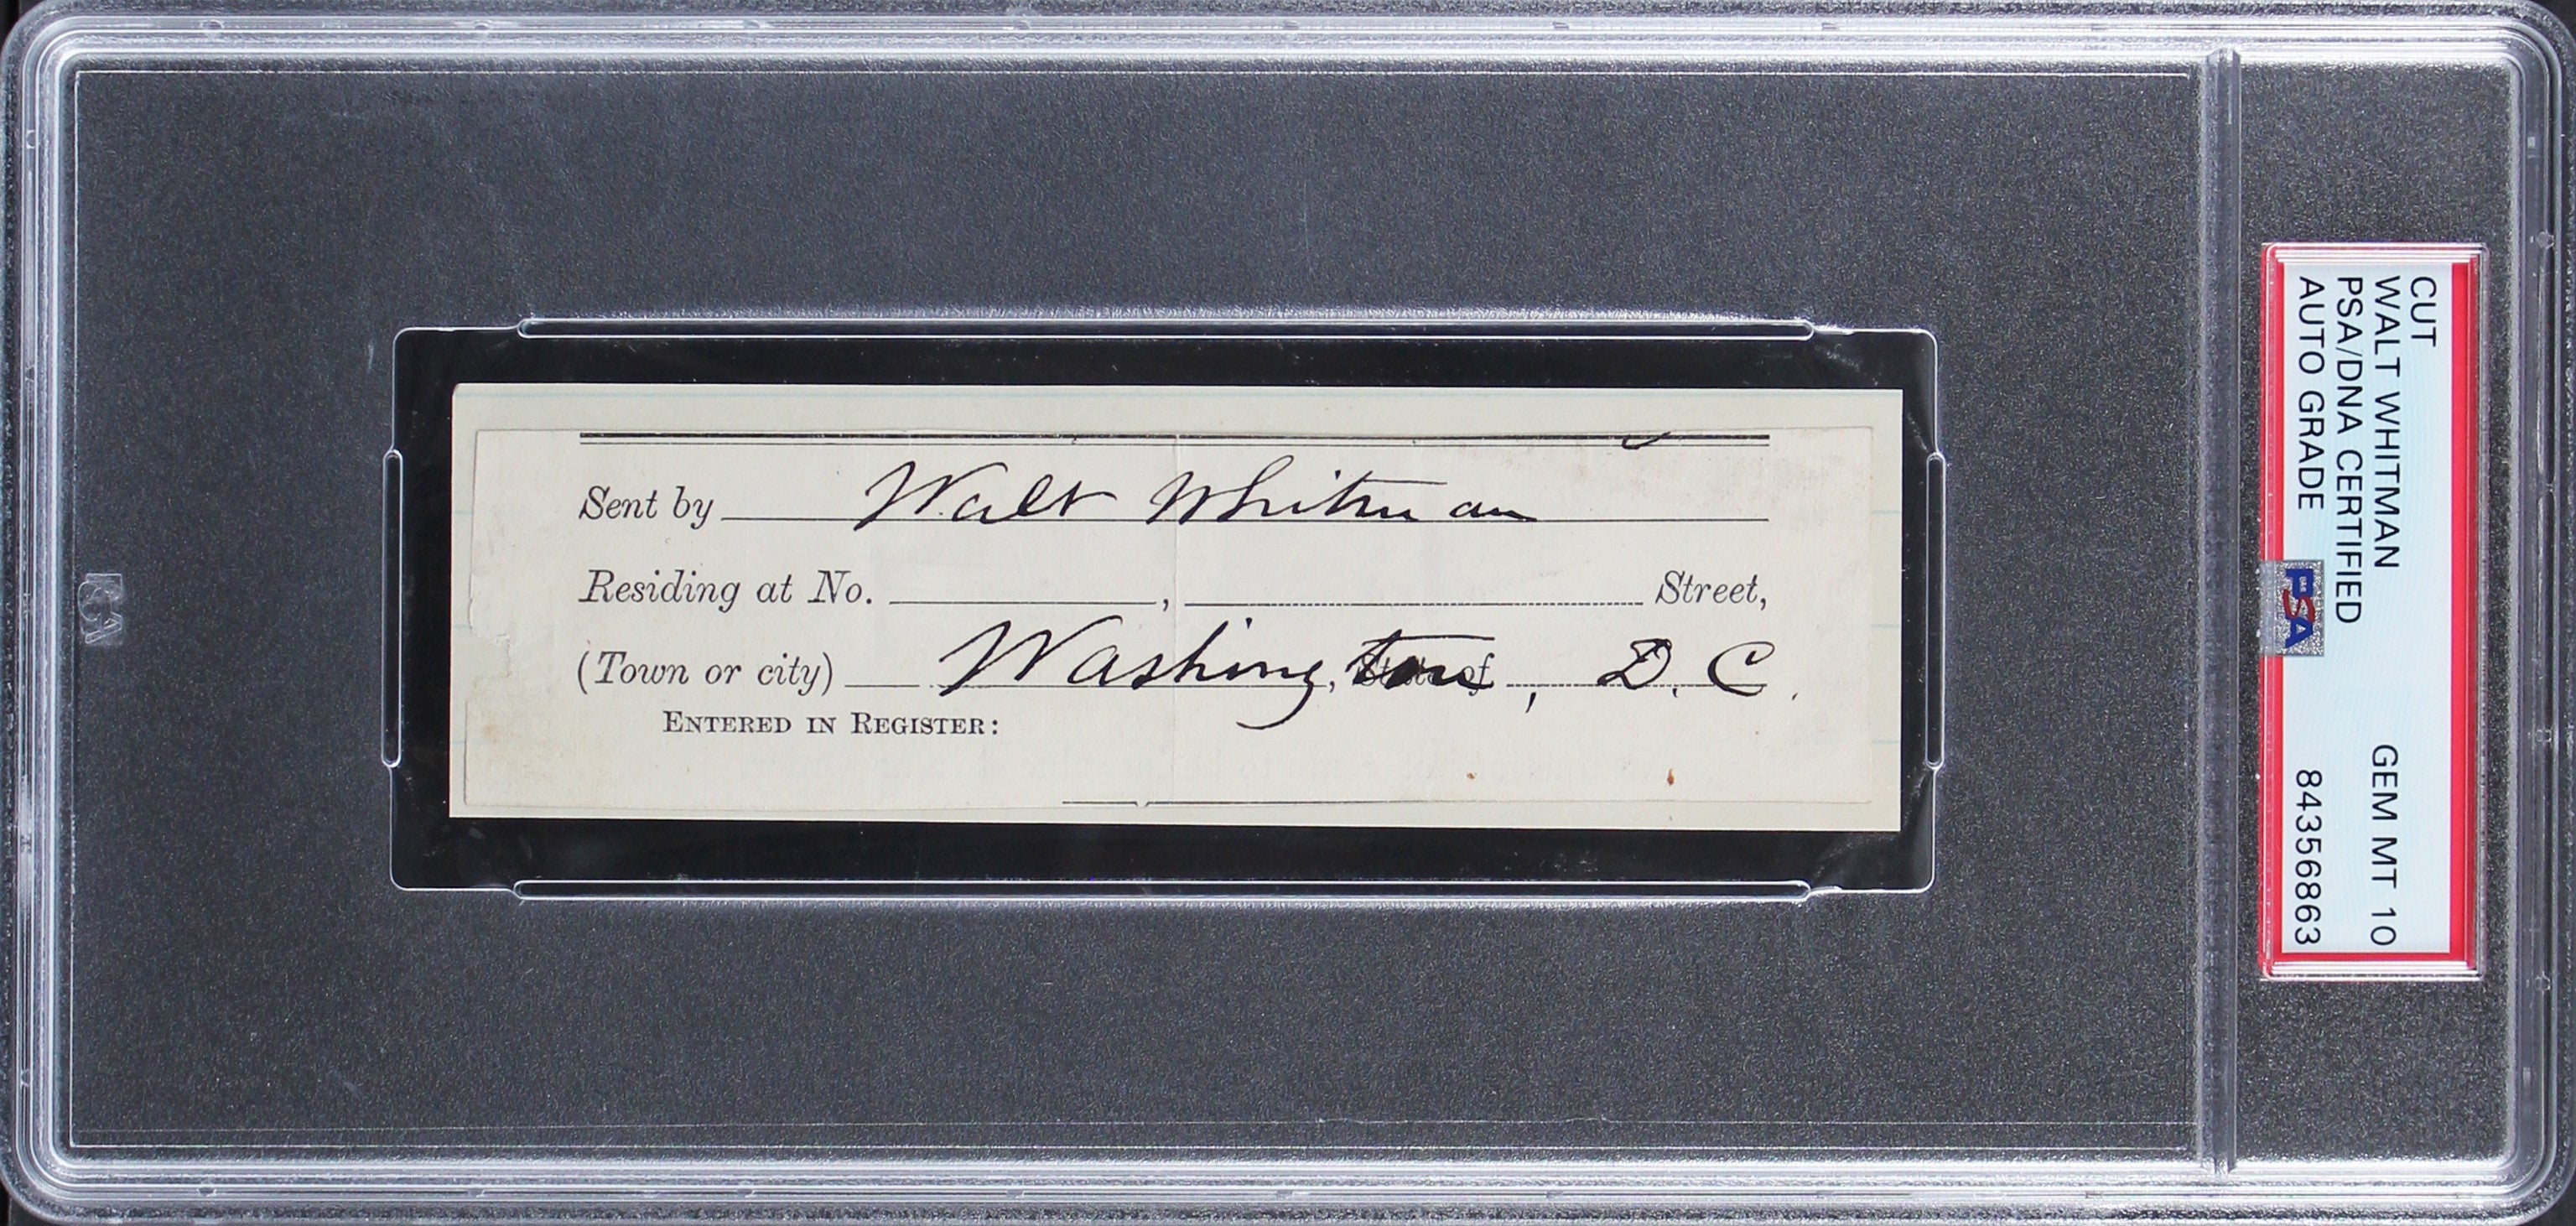 Sent by Walt Whitman
Residing at No. , Street,
(Town or city) Washington, State of , D. C.
ENTERED IN REGISTER:
CUT
WALT WHITMAN GEM MT 10
PSA/DNA CERTIFIED
AUTO GRADE 84356863
PSA
PSA